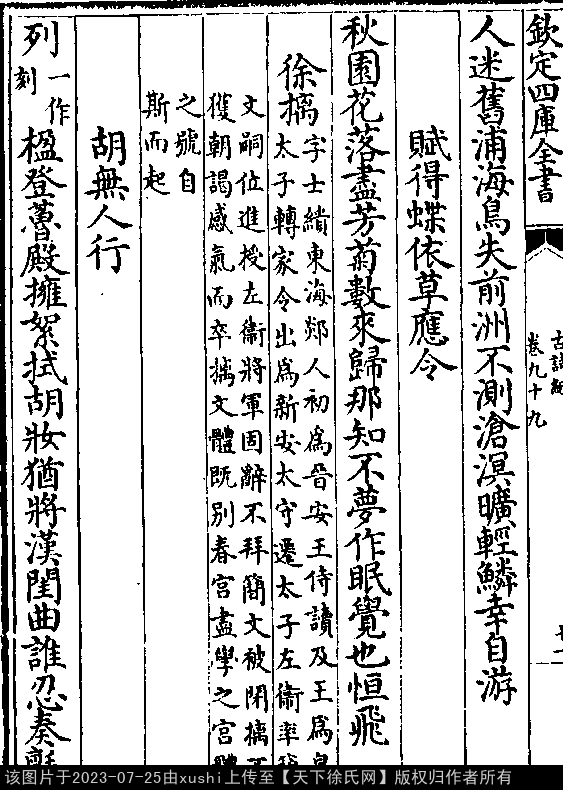 欽定四庫全書
卷九十九
人迷舊浦海鳥失前洲不測滄溟曠輕鱗幸自游
賦得蝶依草應令
秋園花落盡芳菊數來歸那知不夢作眠覺也恒飛
徐摛
字士繢東海郯人初為晉安王侍讀及王為皇
太子轉家令出為新安太守遷太子左衞率
文嗣位進授左衞將軍固辭不拜簡文被閉摛不
獲朝謁感氣而卒摛文體既别春宫盡學之宫體
之號自
斯而起
胡無人行
列
一作
刻
楹登魯殿擁絮拭胡妝猶將漢閨曲誰忍奏
该图片于2023-07-25由xushi上传至【天下徐氏网】版权归作者所有